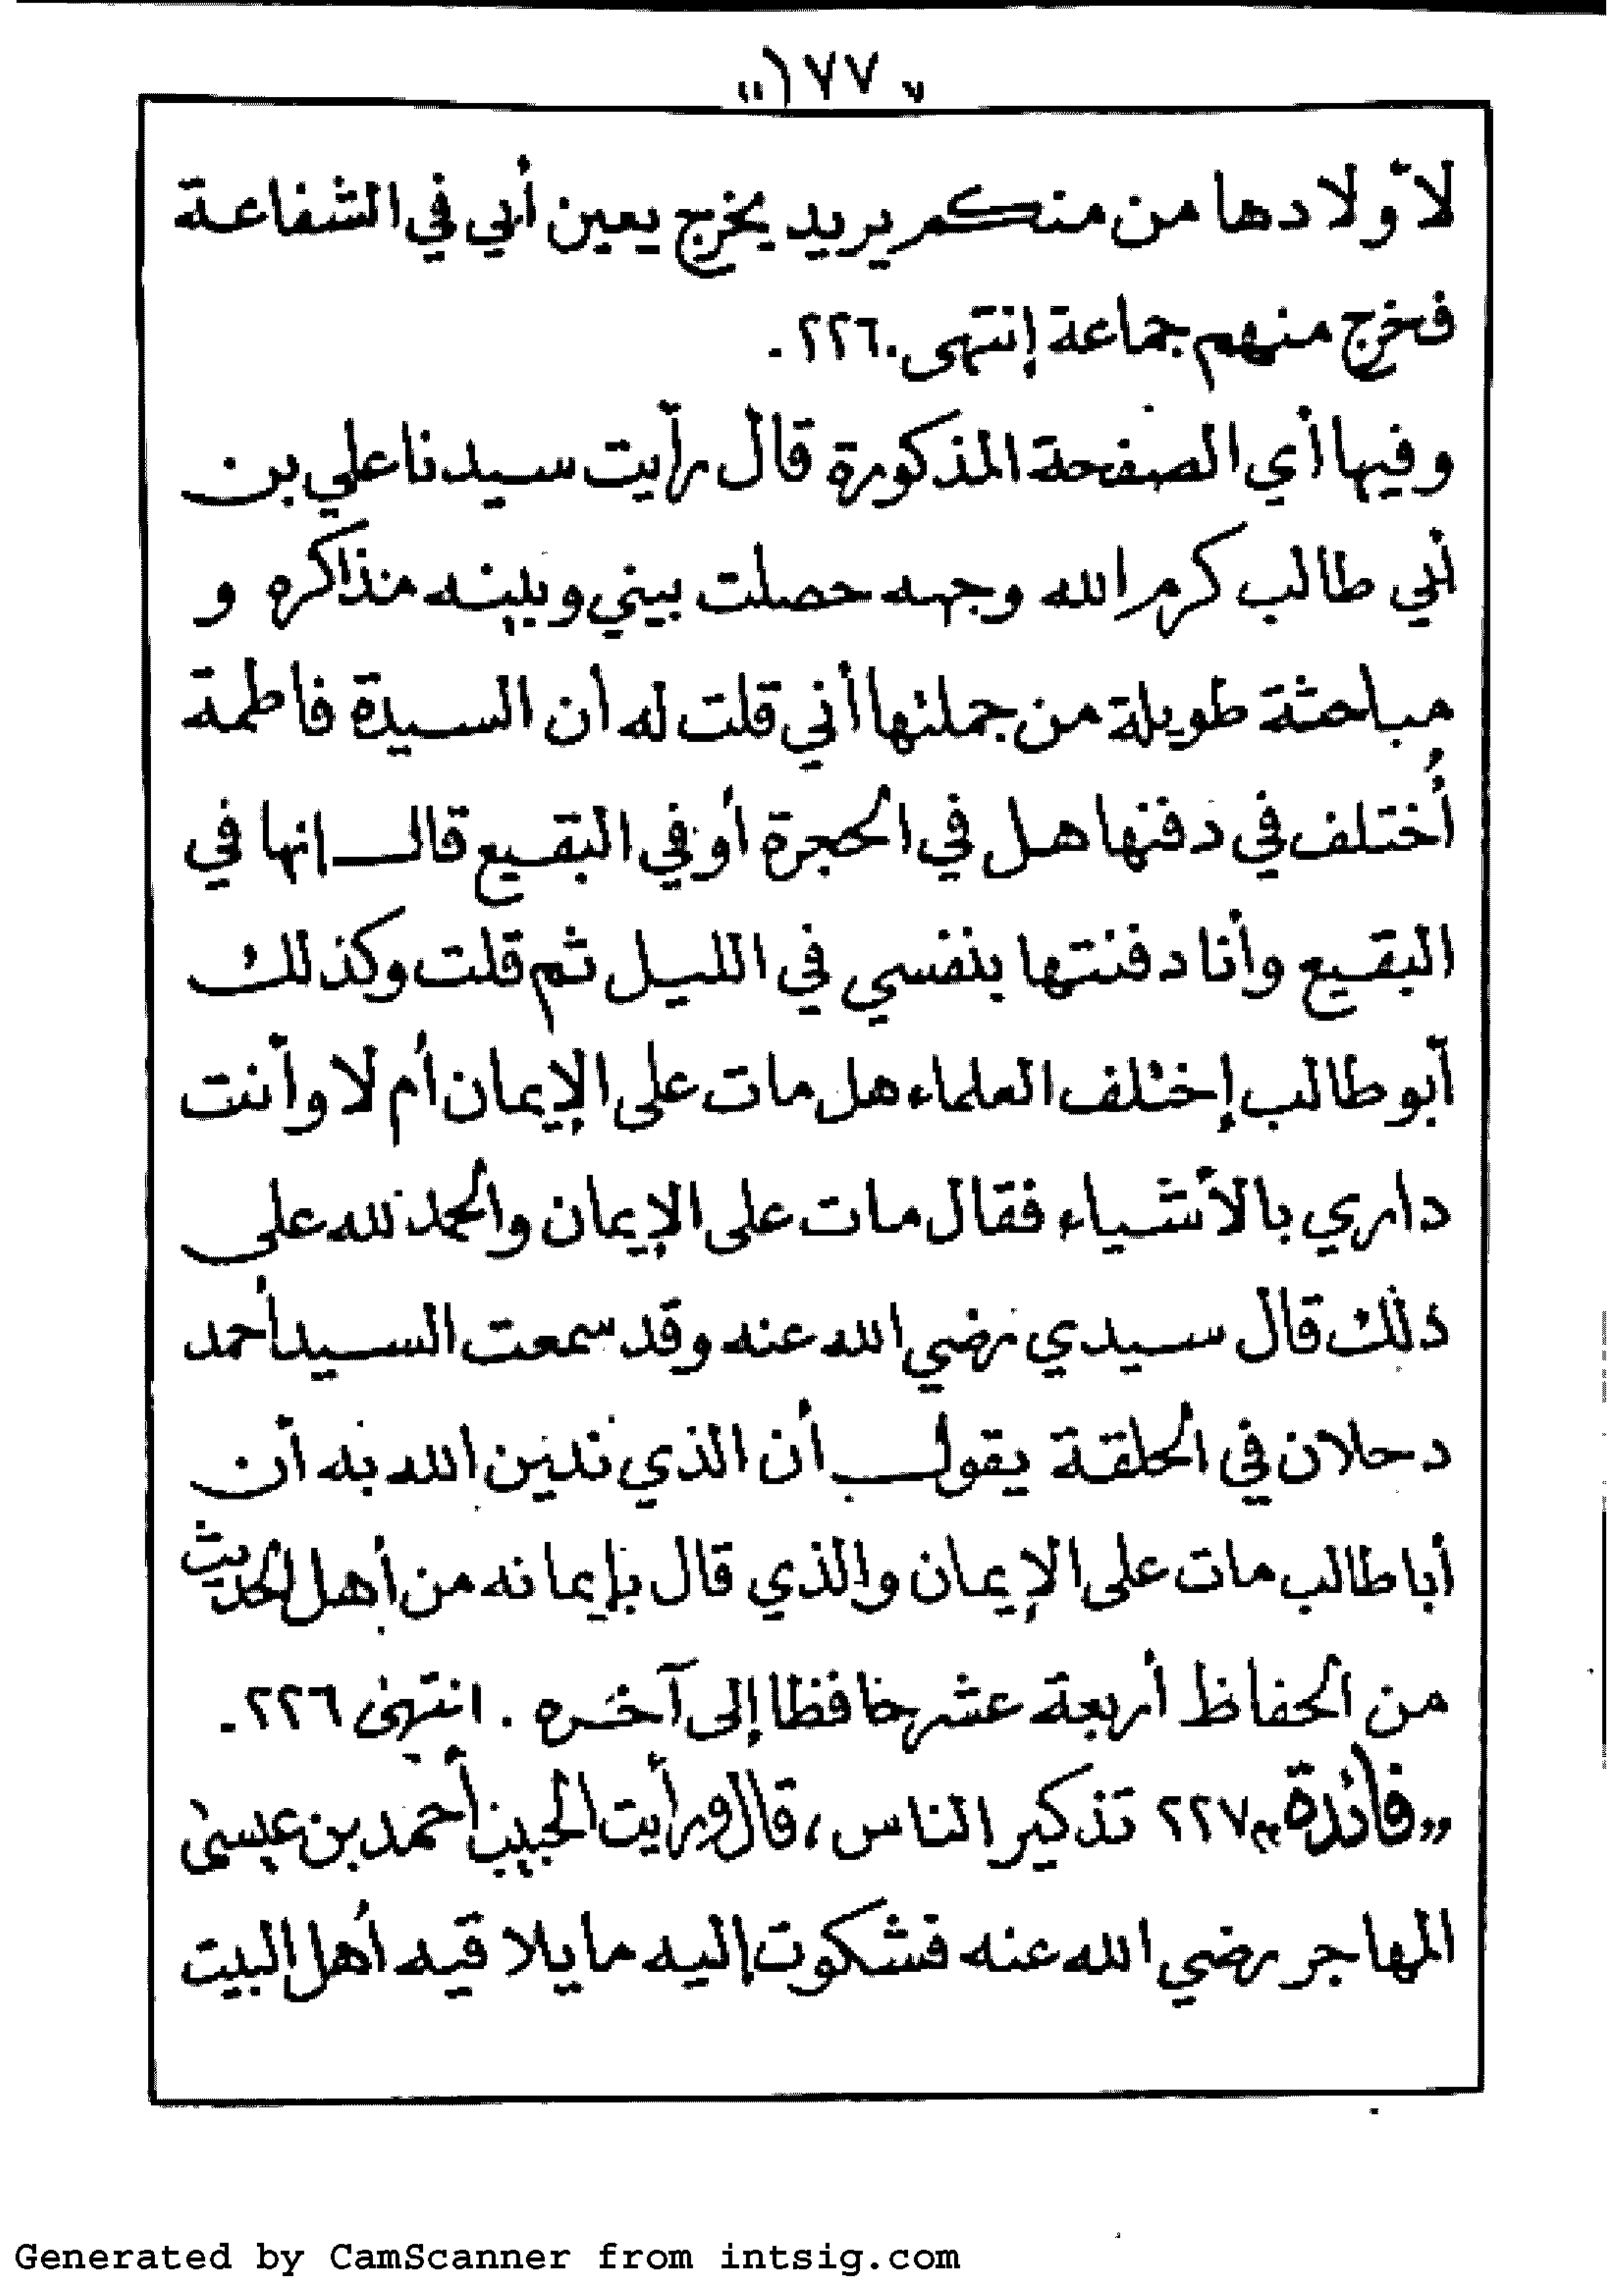 „١٧٧"
لأولادها من منكم يريد يخرج يعين أبي في الشفاعة
فخرج منهم جماعة إنتهى.٢٢٦.
وفيها أي الصفحة المذكورة قال رأيت سيدنا علي بن
أبي طالب كرم الله وجهه حصلت بيني وبينه مذاكره و
مباحثة طويلة من جملتها أني قلت له أن السيدة فاطمة
أُختلف في دفنها هل في الحجرة أو في البقيع قال إنها في
البقيع وأنا دفنتها بنفسي في الليل ثم قلت وكذلك
أبو طالب إختلف العلماء هل مات على الإيمان أم لا وأنت
داري بالأشياء فقال مات على الإيمان والحمد لله على
ذلك قال سيدي رضي الله عنه وقد سمعت السيد أحمد
دحلان في الحلقة يقول أن الذي ندين الله به أن
أبا طالب مات على الإيمان والذي قال بإيمانه من أهل الحديث
من الحفاظ أربعة عشر حافظا إلى آخره . انتهى ٢٢٦.
„فائدة" ٢٢٧ تذكير الناس، قال ورأيت الحبيب أحمد بن عيسى
المهاجر رضي الله عنه فشكوت إليه ما يلاقيه أهل البيت
Generated by CamScanner from intsig.com